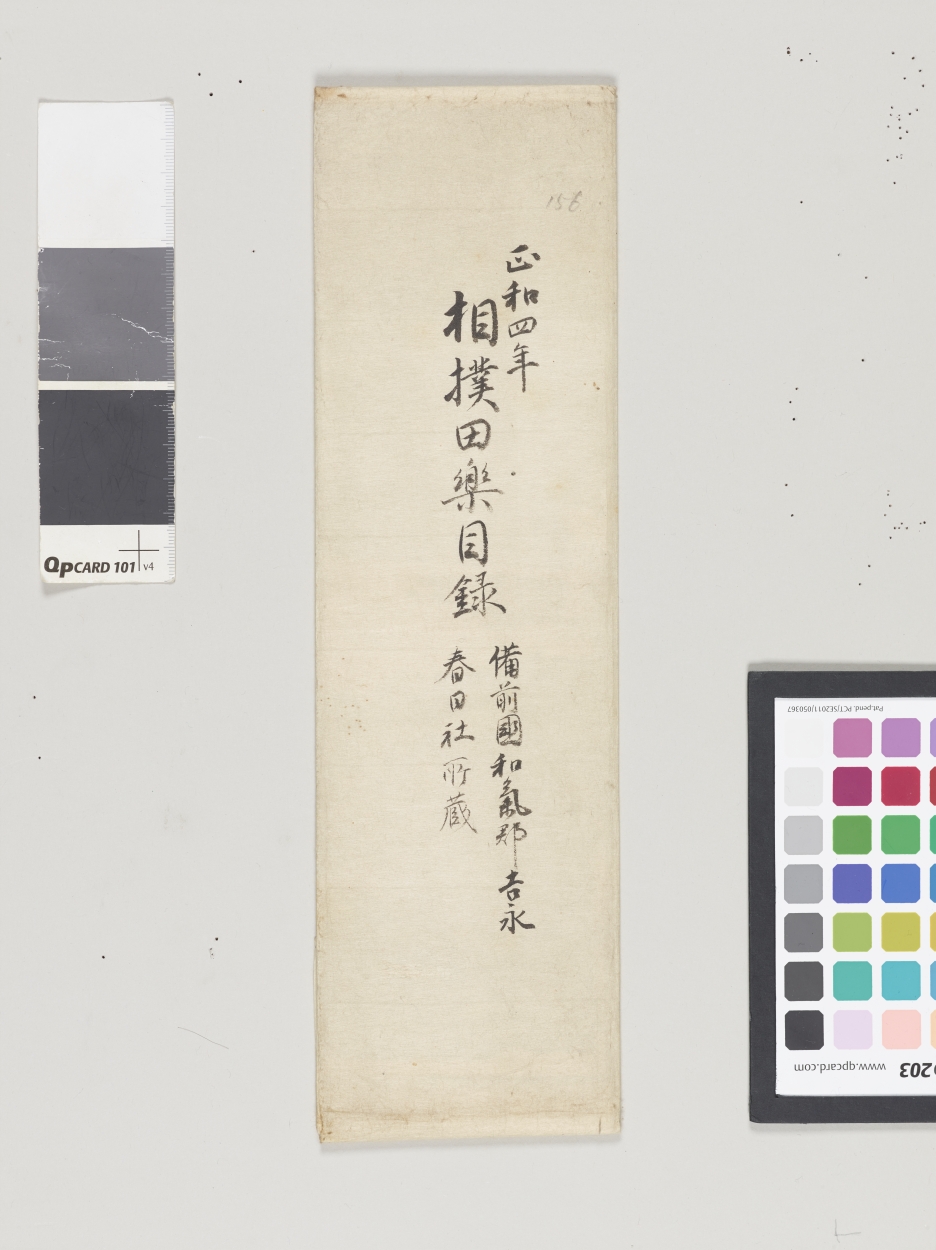 156
正和四年
相撲田樂目録
備前國和氣郡吉永
春日社所蔵
QpCARD 101 v4
Pat.pend. PCT/SE2011/050367
www.qpcard.com
203